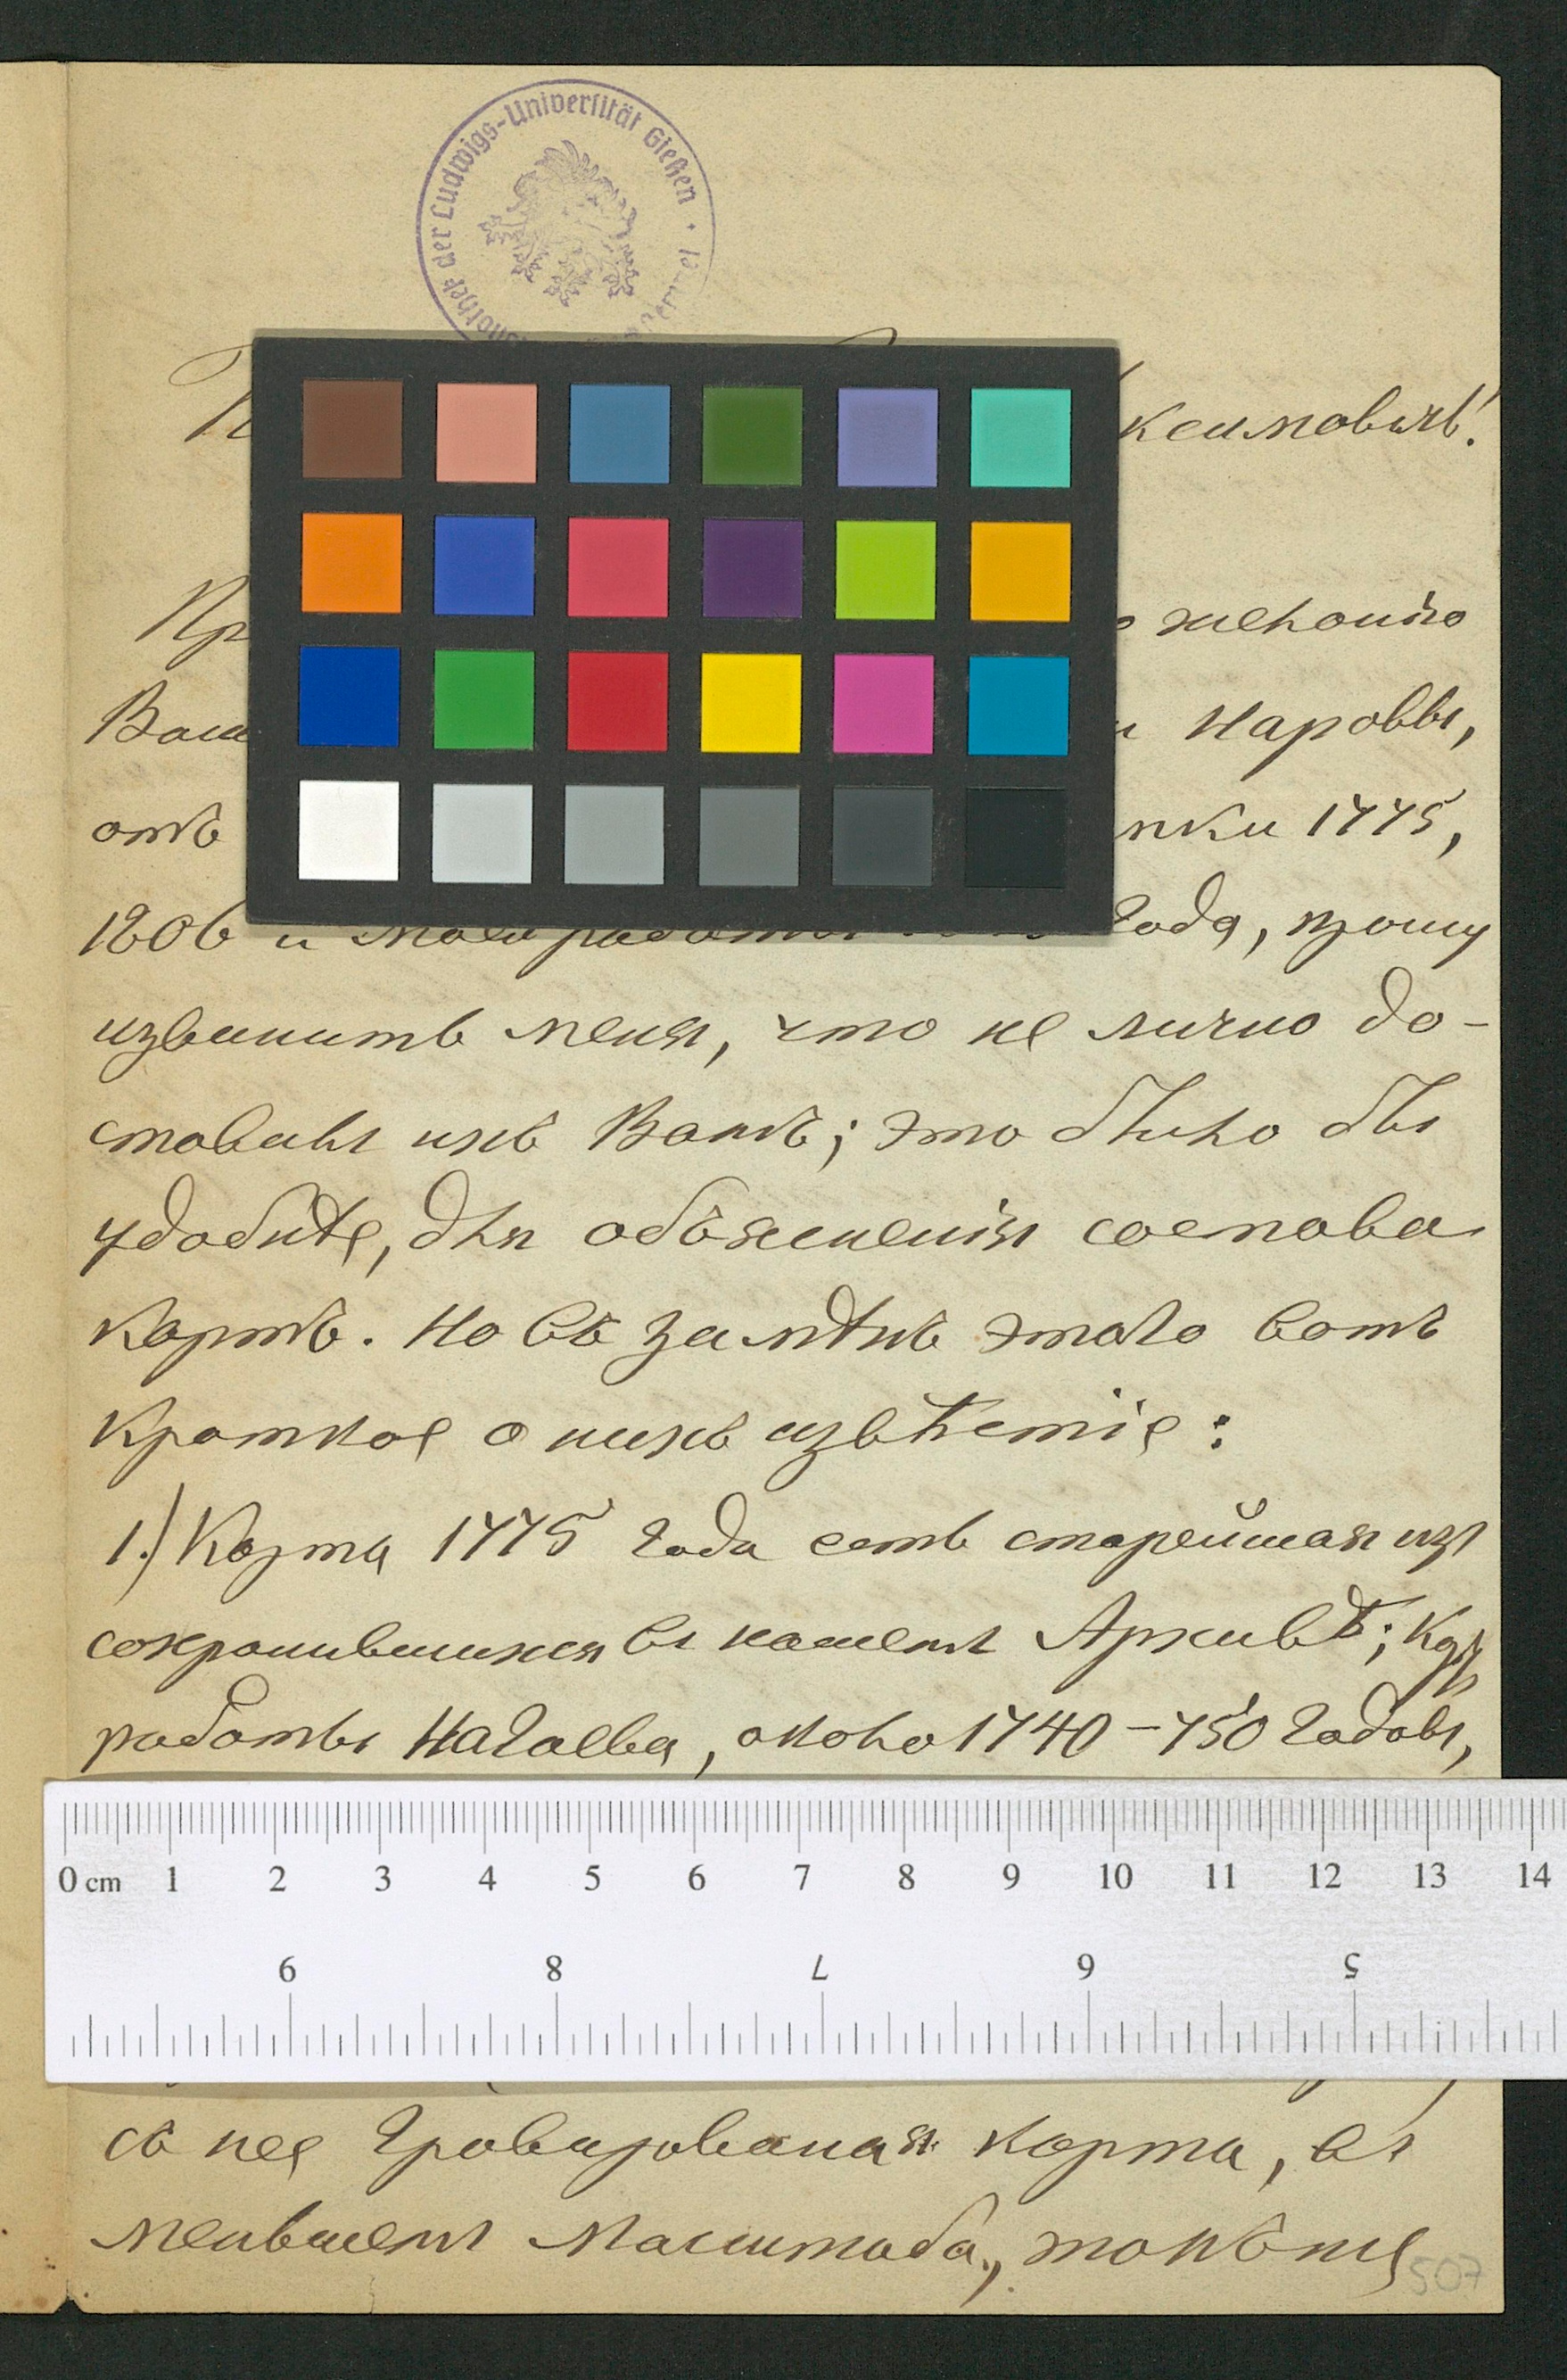 Bibliothek der Ludwigs-Universität Gießen
ксимовичъ!
женiю
Наровы,
отъ 1775,
1806 и моей работы года, прошу
извинить меня, что не лично до-
ставилъ ихъ Вамъ; это было бы
удобнѣе, для объясненiя состава
картъ. Но въ замѣнъ этого вотъ
краткое о нихъ извѣстiе:
1.) Карта 1775 года есть старейшая изъ
сохранившихся въ нашемъ Архивѣ;
работы Нагаева, около 1740–750 годовъ,
0 cm 1 2 3 4 5 6 7 8 9 10 11 12 13 14
9 8 7 6 5
съ нея гравированая карта, въ
меньшемъ масштаба, токъ же
507